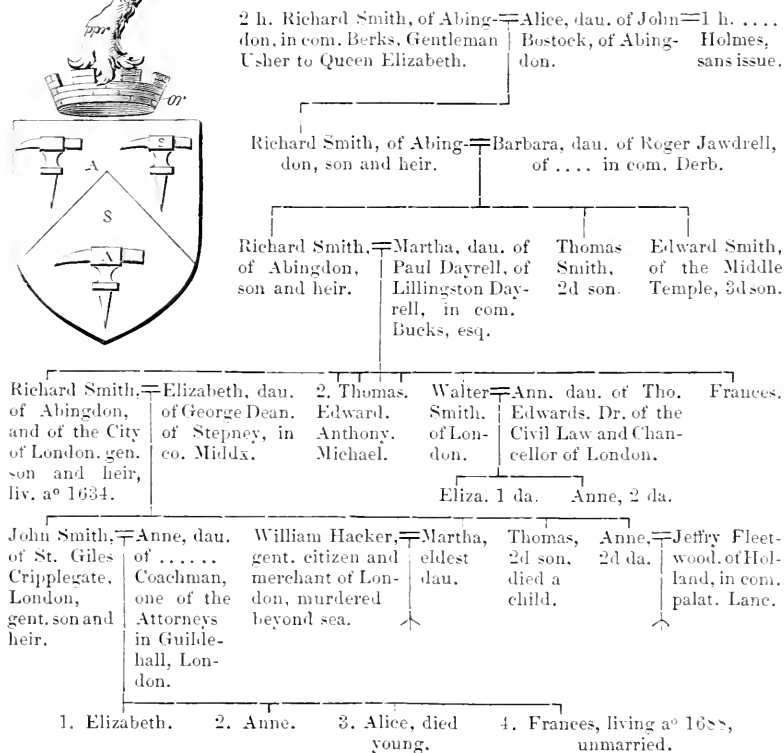 ppr
or
A
S
S
A
2 h. Richard Smith, of Abing-
don, in com. Berks, Gentleman
Usher to Queen Elizabeth.
Alice, dau. of John
Bostock, of Abing-
don.
1 h. ....
Holmes,
sans issue.
Richard Smith, of Abing-
don, son and heir.
Barbara, dau. of Roger Jawdrell,
of .... in com. Derb.
Richard Smith,
of Abingdon,
son and heir.
Martha, dau. of
Paul Dayrell, of
Lillingston Day-
rell, in com.
Bucks, esq.
Thomas
Smith,
2d son.
Edward Smith,
of the Middle
Temple, 3d son.
Richard Smith,
of Abingdon,
and of the City
of London, gen.
son and heir,
liv. aº 1634.
Elizabeth, dau.
of George Dean.
of Stepney, in
co. Middx.
2. Thomas.
Edward.
Anthony.
Michael.
Walter
Smith.
of Lon-
don.
Ann. dau. of Tho.
Edwards. Dr. of the
Civil Law and Chan-
cellor of London.
Frances.
Eliza. 1 da.
Anne, 2 da.
John Smith,
of St. Giles
Cripplegate,
London,
gent. son and
heir.
Anne, dau.
of ......
Coachman,
one of the
Attorneys
in Guilde-
hall, Lon-
don.
William Hacker,
gent. citizen and
merchant of Lon-
don, murdered
beyond sea.
Martha,
eldest
dau.
Thomas,
2d son,
died a
child.
Anne,
2d da.
Jeffry Fleet-
wood. of Hol-
land, in com.
palat. Lanc.
1. Elizabeth.
2. Anne.
3. Alice, died
young.
4. Frances, living aº 1688,
unmarried.